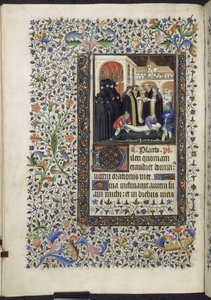 a. Placebo. ps.
ilexi quoniam
exaudiet dominus
uocem orationis mee
Quia inclinauit aurem su
am michi: et in diebus meis